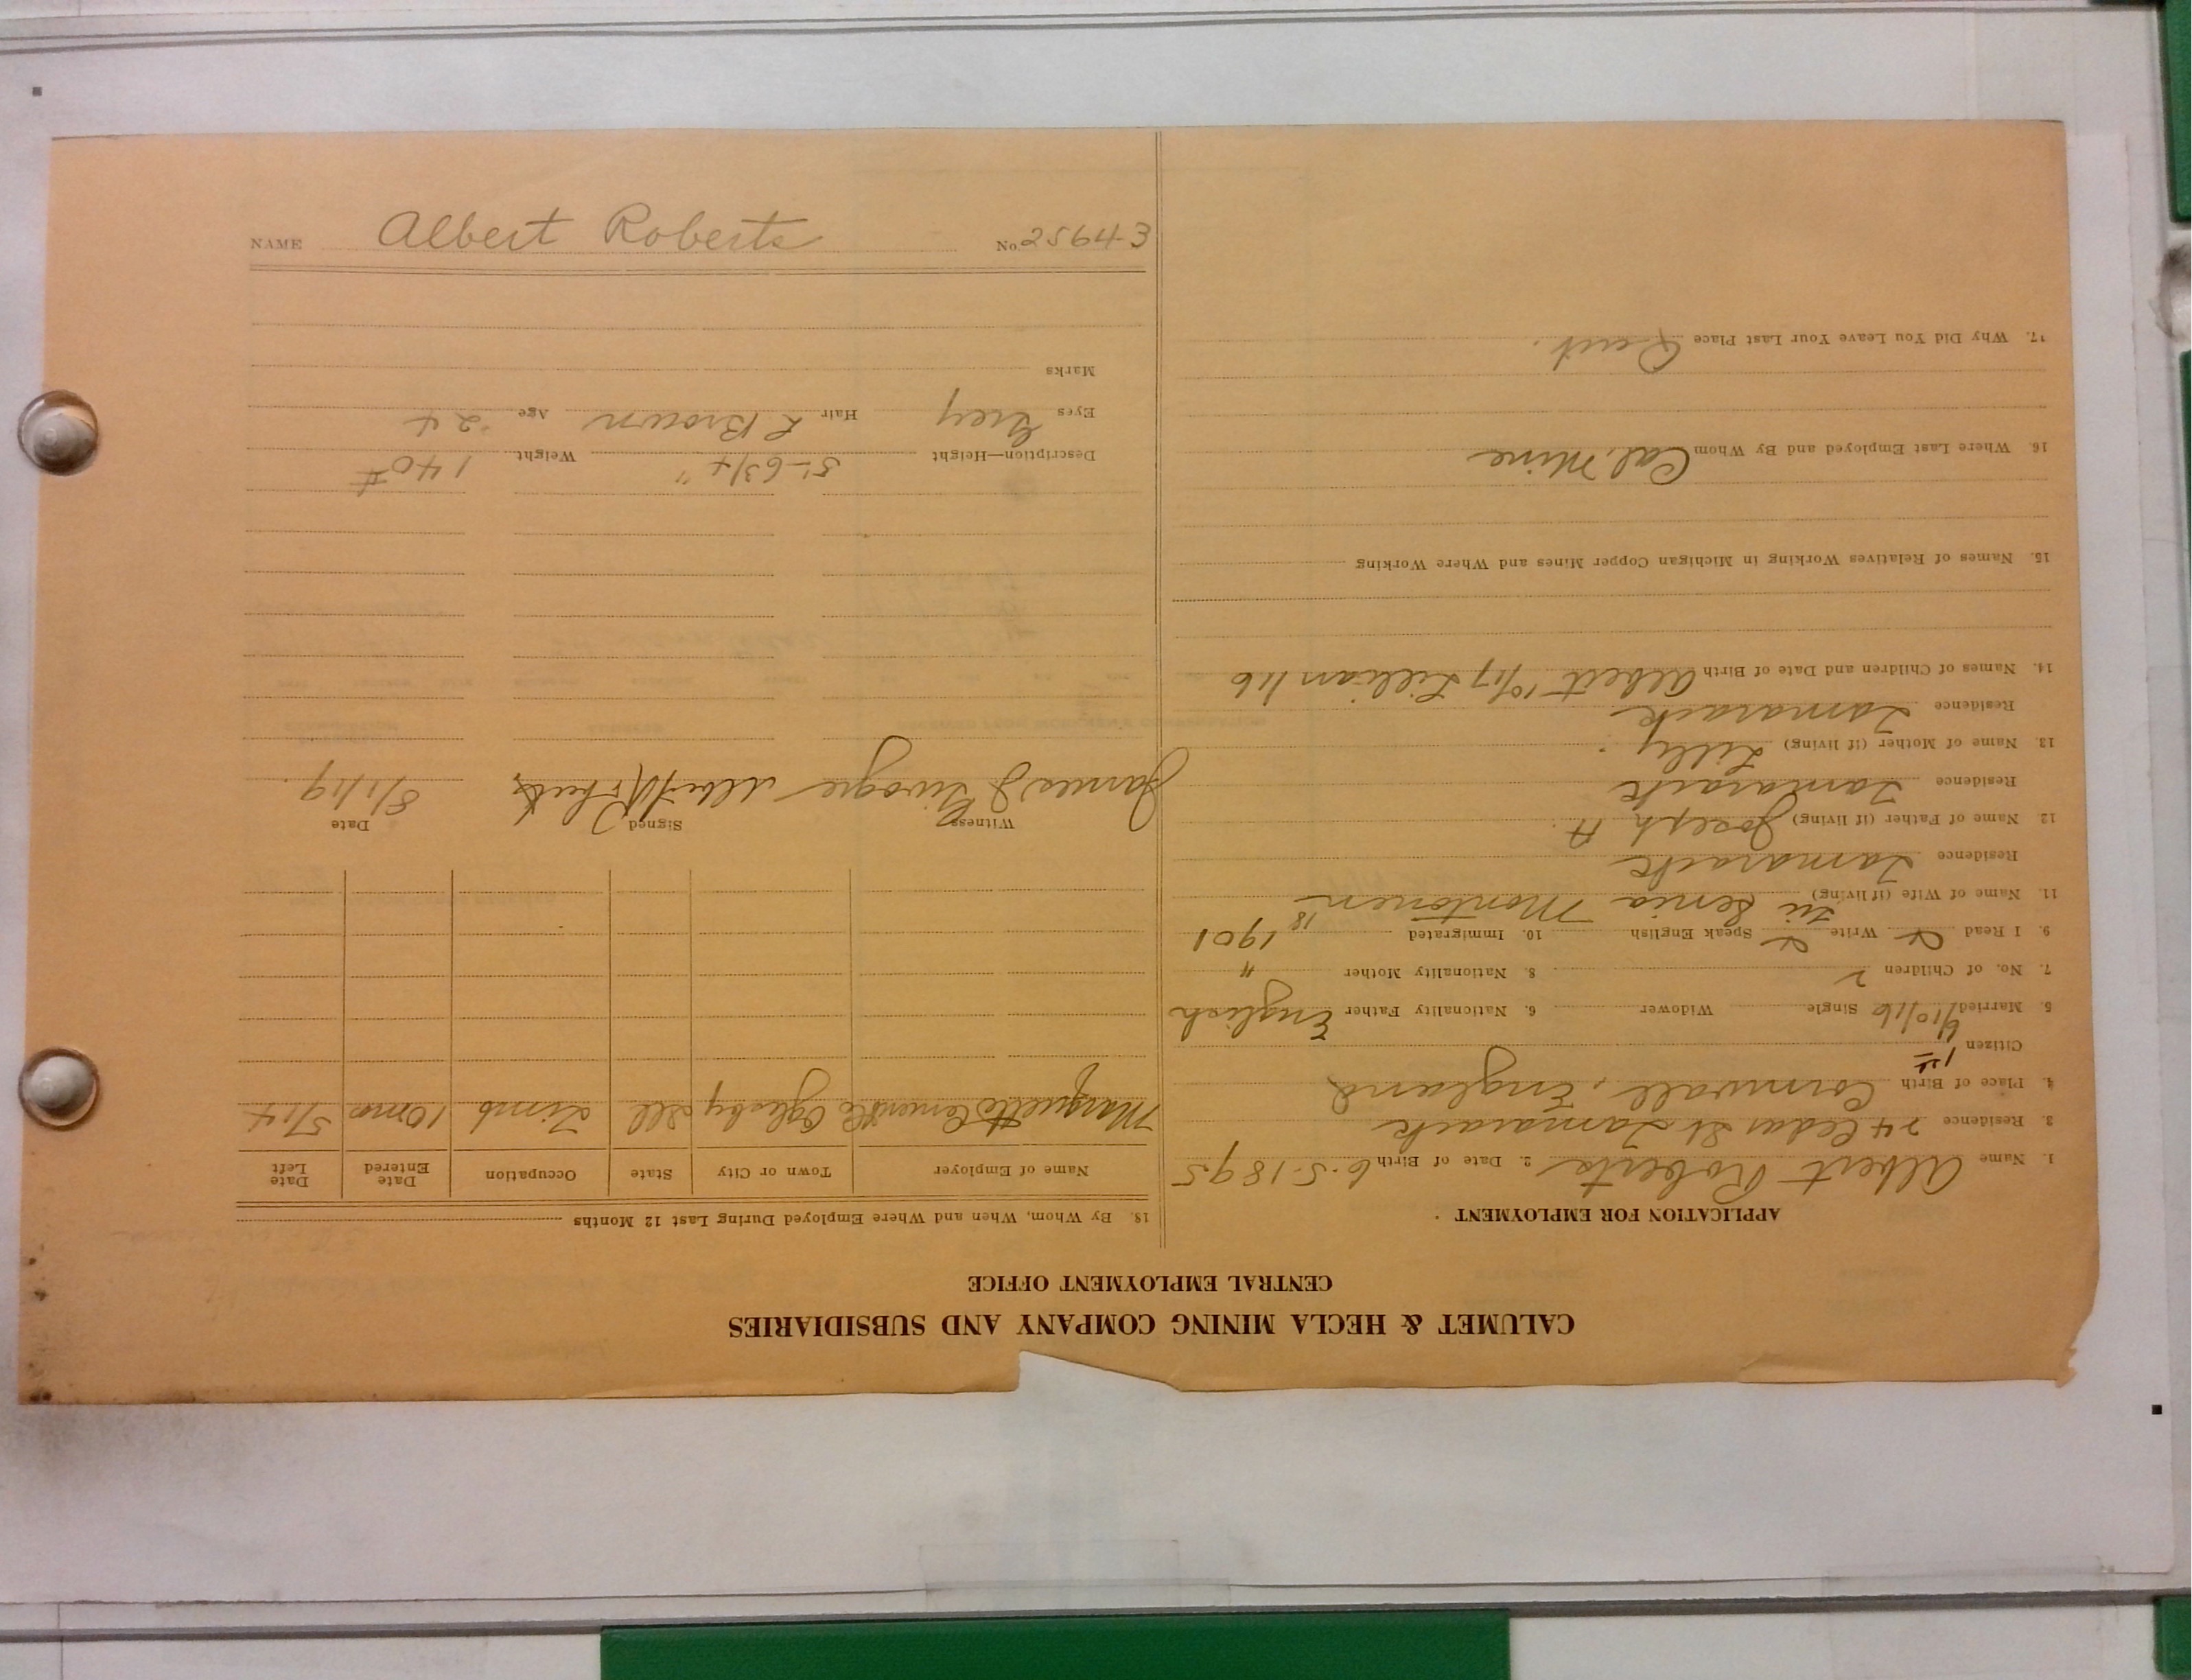 CALUMET & HECLA MINING COMPANY AND SUBSIDIARIES
CENTRAL EMPLOYMENT OFFICE
APPLICATION FOR EMPLOYMENT
1. Name Albert Roberts 2. Date of Birth 6.5.1895
3. Residence 24 Cedar St Tamarack
4. Place of Birth Cornwall, England
Citizen 1st
5. Married 6/10/16 Single Widower 6. Nationality Father English
7. No. of Children 2 8. Nationality Mother "
9. I Read Write Speak English 10. Immigrated 1901
11. Name of Wife (if living) Senia Montonen
Residence Tamarack
12. Name of Father (if living) Joseph H.
Residence Tamarack
13. Name of Mother (if living) Lilly
Residence Tamarack
14. Names of Children and Date of Birth Albert 10/17 Lillian 1/16
15. Names of Relatives Working in Michigan Copper Mines and Where Working
16. Where Last Employed and By Whom Cal. Mine
17. Why Did You Leave Your Last Place Quit.
18. By Whom, When and Where Employed During Last 12 Months
Name of Employer Town or City State Occupation Date Entered Date Left
Marquette Cement Co Oglesby Ill 10 mo 5/14
Witness Signed Date
James J Albert Roberts 8/1/19
Description—Height 5'-6 3/4" Weight 140 #
Eyes Grey Hair L Brown Age 24
Marks
NAME Albert Roberts No. 25643